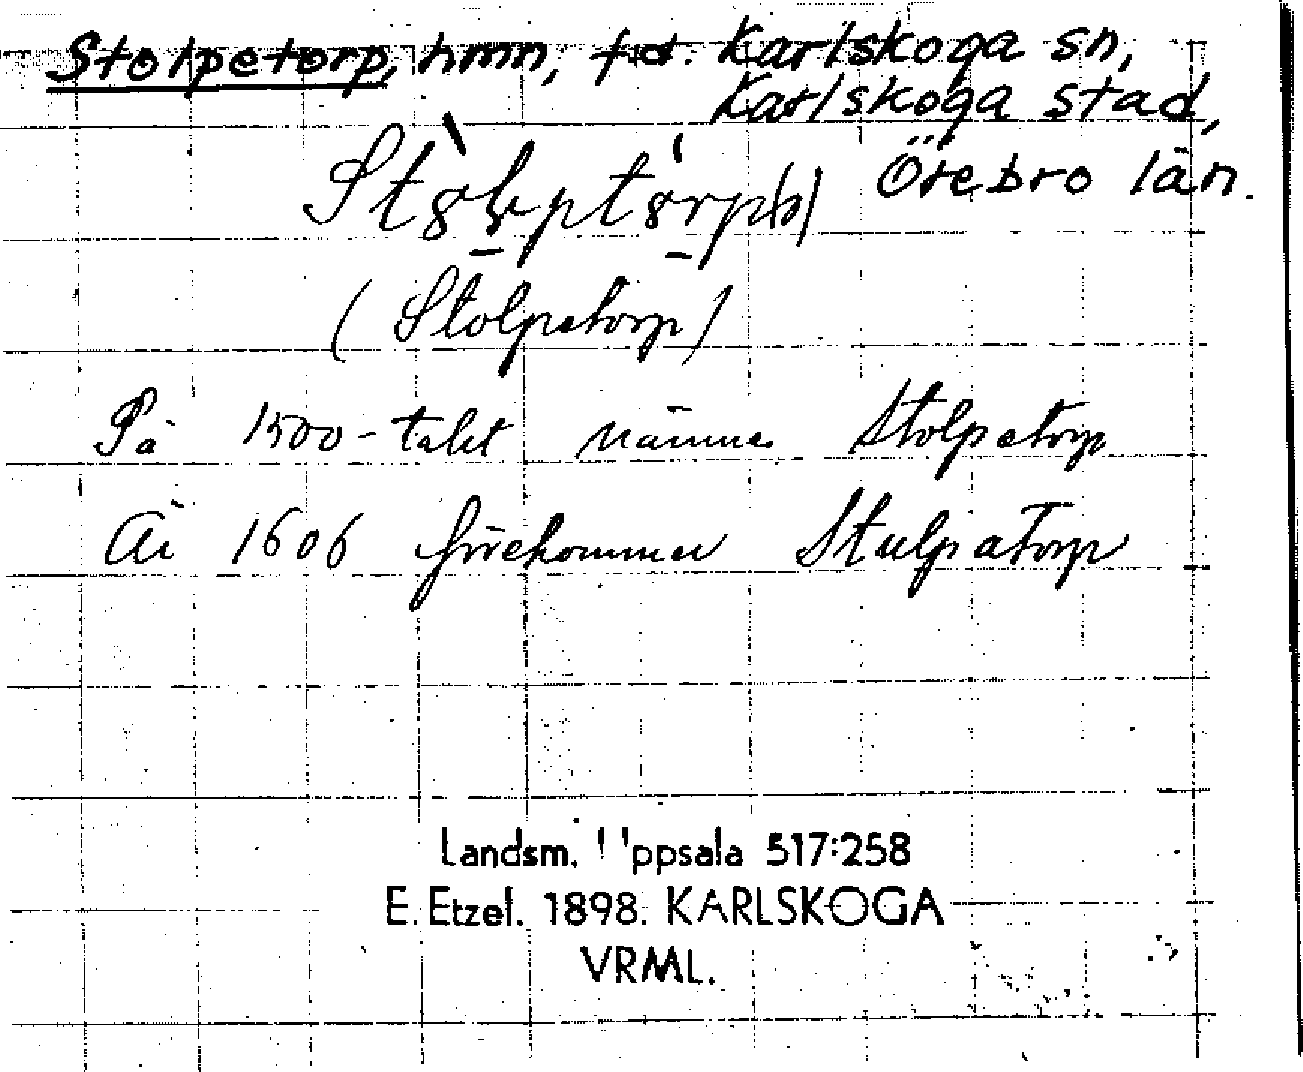 Stolpetorp, hmn, f.d. Karlskoga sn,
Karlskoga stad,
Örebro län.
(Stolpetorp)
På 1500-talet nämnes Stolpetorp
År 1606 förekommer Stulpatorp
Landsm. Uppsala 517:258
E. Etzel. 1898. KARLSKOGA
VRML.